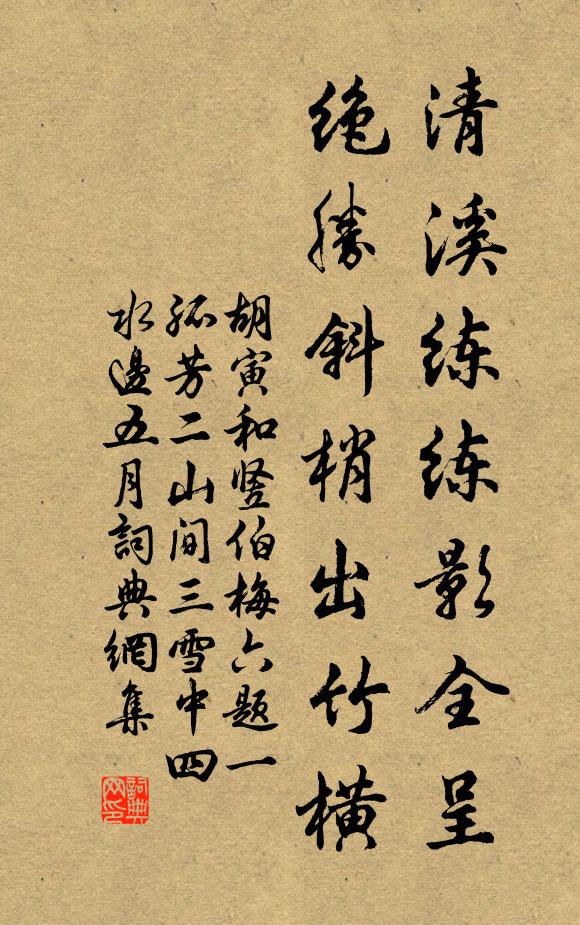 清溪练练影全呈
绝勝斜梢出竹横
胡寅和竖伯梅六题一
孤芳二山间三雪中四
水邊五月詞典網集
詞典网印